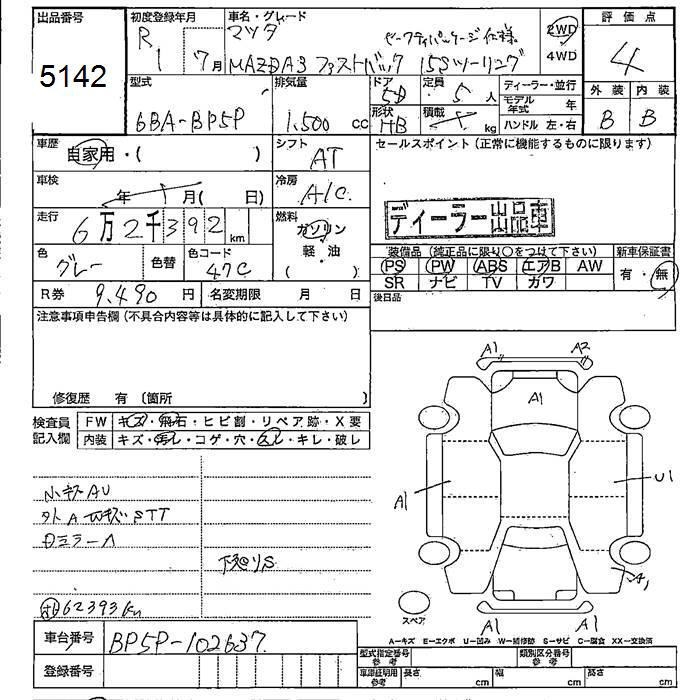 出品番号 初度登録年月 車名・グレード 評価点
5142 R1 7月 マツダ セーフティパッケージ仕様 2WD 4
MAZDA3 ファストバック 15Sツーリング 4WD
型式 排気量 ドア 定員 ディーラー・並行 外装 内装
6BA-BP5P 1,500 cc 5D 5人 モデル年式 年 B B
形状 積載 HB kg ハンドル 左・右
車歴 自家用・( ) シフト AT セールスポイント (正常に機能するものに限ります)
車検 年 月( 日) 冷房 A/C
ディーラー出品車
走行 6万2千392km 燃料 ガソリン 軽・油 ( )
装備品 (純正品に限り〇をつけて下さい) 新車保証書
色 グレー 色替 色コード 47C PS PW ABS エアB AW 有・無
SR ナビ TV カワ
R券 9,490円 名変期限 月 日 後日品
注意事項申告欄 (不具合内容等は具体的に記入して下さい)
A1 A2
A1
修復歴 有 〔箇所 〕
検査員記入欄 FW キズ・飛石・ヒビ割・リペア跡・X要
内装 キズ・汚レ・コゲ・穴・スレ・キレ・破レ
A1 U1
小キズAU
外A Wキズ STT
ロミラーA
下廻りS
A1
62393km
スペア A1 A1
A-キズ E-エクボ U-凹み W-補修跡 S-サビ C-腐食 XX-交換済
車台番号 BP5P-102637
型式指定番号 参考 類別区分番号 参考
登録番号 車庫証明用 参考 長さ cm 幅 cm 高さ cm